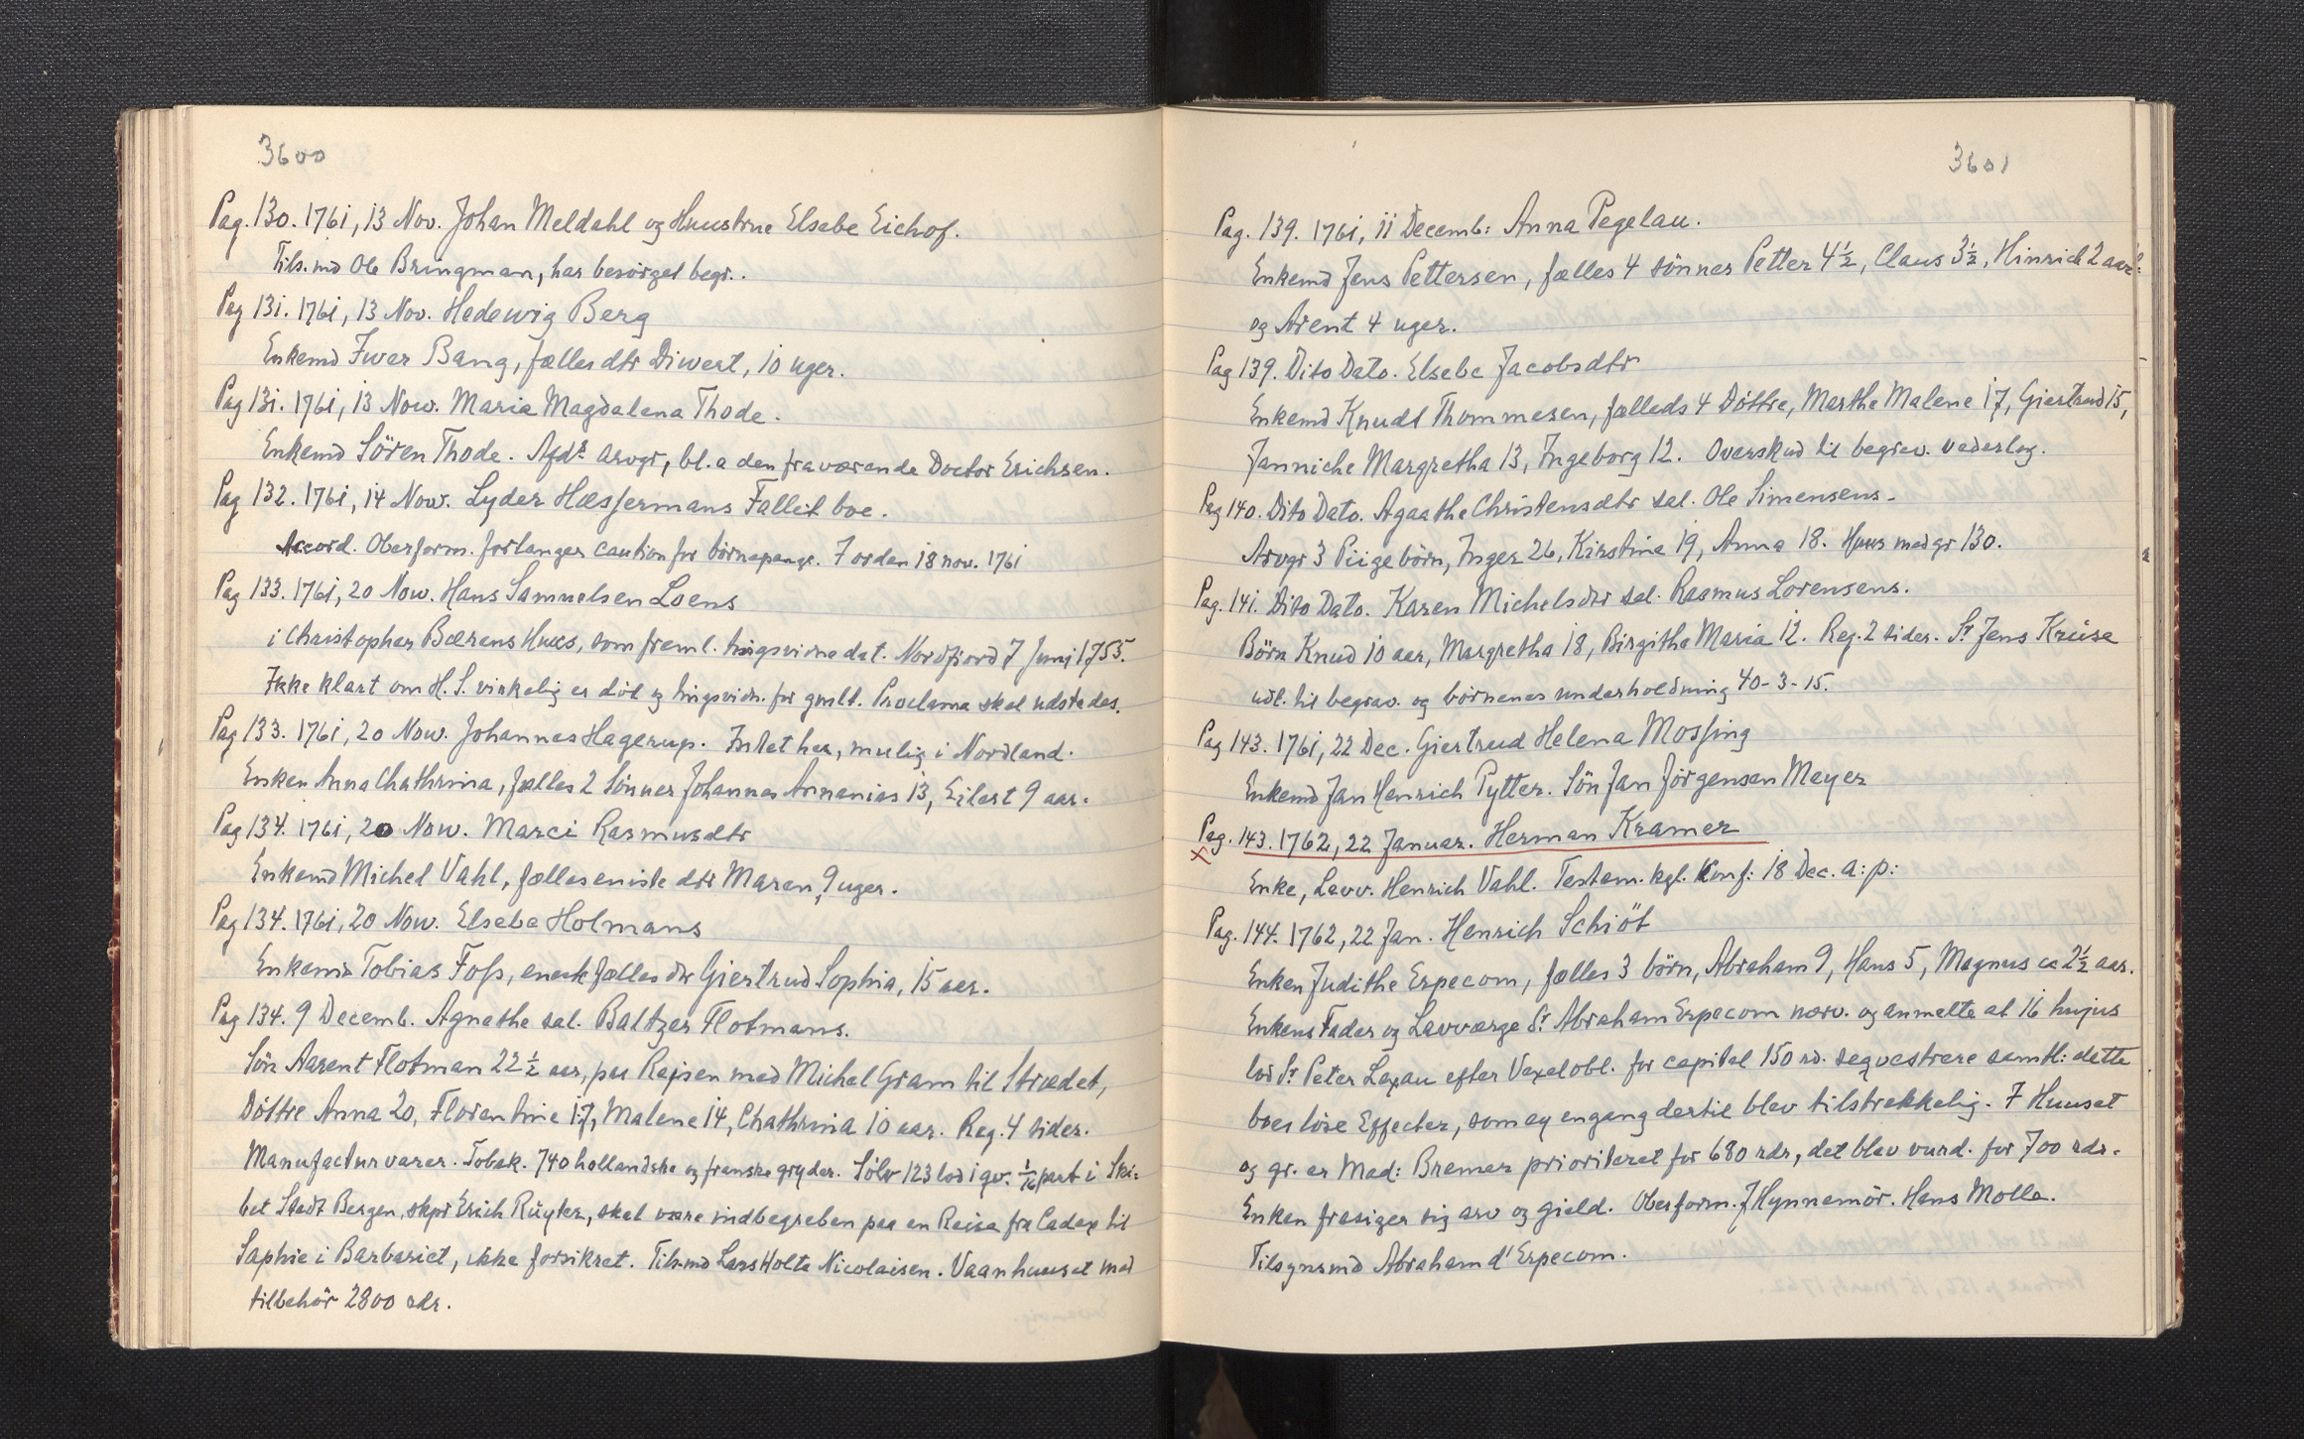 3600
Pag. 130. 1761, 13 Nov. Johan Meldahl og Huustrue Elsebe Eichof.
Tils.md Ole Bringman, har besörget begr..
Pag 131. 1761, 13 Nov. Hedewig Berg
Enkemd Iver Bang, fælles dtr Diwert, 10 uger.
Pag 131. 1761, 13 Now. Maria Magdalena Thode.
Enkemd Sören Thode. Afdr arvgr, bl.a den fraværende Doctor Erichsen.
Pag 132. 1761, 14 Now. Lyder Hæssermans Fallit boe.
Accord. Oberform. forlanger caution for börnepenge. I orden 18 nov. 1761
Pag 133. 1761, 20 Now. Hans Samuelsen Loens
i Christopher Bærens Huus, som freml. tingsvidne dat. Nordfiord 7 Junj 1755.
Ikke klart om H.S. virkelig er död og tingsvidn. for gmlt. Proclama skal udstedes.
Pag 133. 1761, 20 Now. Johannes Hagerup. Intet her, mulig i Nordland.
Enken Anna Chathrina, fælles 2 Sönner Johannes Annanias 13, Eilert 9 aar.
Pag 134. 1761, 20 Now. Marci Rasmusdtr
Enkemd Michel Vahl, fælles eniste dtr Maren, 9 uger.
Pag 134. 1761, 20 Now. Elsebe Holmans
Enkemd Tobias Foss, eneste fælles dtr Giertrud Sophia, 15 aar.
Pag 134. 9 Decemb. Agnethe sal. Baltzer Flotmans.
Sön Aarent Flotman 22 1/2 aar, paa Rejsen med Michel Gram til Strædet,
Döttre Anna 20, Florentine 17, Malene 14, Chathrina 10 aar. Reg. 4 sider.
Manufactur varer. Tobak. 740 hollandske og franske gryder. Sölv 123 lod i qv. 1/16 part i Ski-
bet Stadt Bergen, skpr Erich Rüyter, skal være indbegreben paa en Reise fra Cadex til
Saphie i Barbariet, ikke forsikret. Tils.md Lars Holte Nicolaisen. Vaanhuuset med
tilbehör 2800 rdr.
3601
Pag. 139. 1761, 11 Decemb: Anna Pegelau.
Enkemd Jens Pettersen, fælles 4 sönner Petter 4 1/2, Claus 3 1/2, Hinrich 2 aar
og Arent 4 uger.
Pag 139. Dito Dato. Elsebe Jacobsdtr
Enkemd Knudt Thommesen, fælleds 4 Döttre, Marthe Malene 17, Giertrud 15,
Janniche Margretha 13, Ingeborg 12. Overskud til begrav. vederlag.
Pag 140. Dito Dato. Agaathe Christensdtr sal. Ole Simensens.
Arvgr 3 Piigebörn, Inger 26, Kirstina 19, Anna 18. Huus med gr 130.
Pag. 141. Dito Dato. Karen Michelsdtr sal. Rasmus Lorensens.
Börn Knud 10 aar, Margretha 18, Birgitha Maria 12. Reg. 2 sider. Sr Jens Krüse
udl. til begrav. og börnenes underholdning 40-3-15.
Pag 143. 1761, 22 Dec. Giertrud Helena Mossing
Enkemd Jan Henrich Pytter. Sön Jan Jörgensen Meyer
Pag. 143. 1762, 22 Januar. Herman Kramer
x
Enke, Lavv. Henrich Vahl. Testam. kgl. Konf: 18 Dec. a:p:
Pag. 144. 1762, 22 Jan. Henrich Schiöt
Enken Judithe Erpecom, fælles 3 börn, Abraham 9, Hans 5, Magnus ca 2 1/2 aar.
Enkens Fader og Lavværge Sr Abraham Erpecom nærv. og anmelte at 16 hujus
lod Sr Peter Lexau efter Vexelobl. for capital 150 rd. seqvestrere samtl: dette
boes löse Effecter, som ey engang dertil blev tilstrekkelig. I Huuset
og gr. er Mad: Bremer prioriteret for 680 rdr, det blev vurd. for 700 rdr.
Enken frasiger sig arv og gield. Oberform. J Hynnemör. Hans Molle.
Tilsynsmd Abraham d'Erpecom.